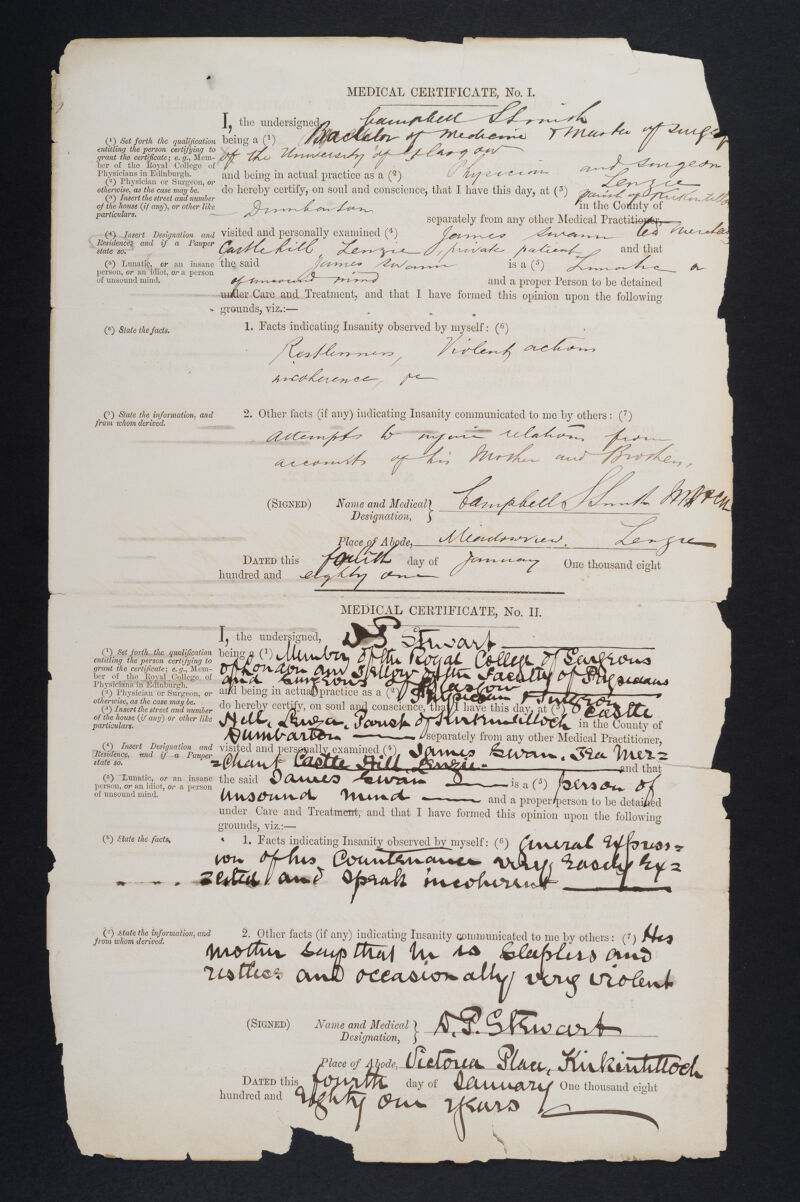 MEDICAL CERTIFICATE, No. I.
I, the undersigned, Campbell S Smith
being a (¹) Bachelor of Medicine & Master of Surgery
of the University of Glasgow
and being in actual practice as a (²) Physician and Surgeon
do hereby certify, on soul and conscience, that I have this day, at (³) Lenzie
parish of Kirkintilloch
in the County of
Dumbarton
separately from any other Medical Practitioner,
visited and personally examined (⁴) James Swann Tea Merchant
Castlehill Lenzie, private patient and that
the said James Swann is a (⁵) Lunatic or
of unsound mind and a proper Person to be detained
under Care and Treatment, and that I have formed this opinion upon the following
grounds, viz.:—
(¹) Set forth the qualification
entitling the person certifying to
grant the certificate; e.g., Mem-
ber of the Royal College of
Physicians in Edinburgh.
(²) Physician or Surgeon, or
otherwise, as the case may be.
(³) Insert the street and number
of the house (if any), or other like
particulars.
(⁴) Insert Designation and
Residence, and if a Pauper
state so.
(⁵) Lunatic, or an insane
person, or an idiot, or a person
of unsound mind.
(⁶) State the facts.
1. Facts indicating Insanity observed by myself: (⁶)
Restlessness, Violent actions
incoherence, &c
(⁷) State the information, and
from whom derived.
2. Other facts (if any) indicating Insanity communicated to me by others: (⁷)
attempts to injure relations from
accounts of his Mother and Brothers,
(SIGNED) Name and Medical Designation, Campbell S Smith MB & CM
Place of Abode, Meadowview, Lenzie
DATED this fourth day of January One thousand eight
hundred and eighty one
MEDICAL CERTIFICATE, No. II.
I, the undersigned, D P Stewart
being a (¹) Member of the Royal College of Surgeons
of London and Fellow of the Faculty of Physicians
and Surgeons of Glasgow
and being in actual practice as a (²) Physician & Surgeon
do hereby certify, on soul and conscience, that I have this day, at (³) Castle
Hill, Lenzie, Parish of Kirkintilloch in the County of
Dumbarton separately from any other Medical Practitioner,
visited and personally examined (⁴) James Swan. Tea Mer=
=chant Castle Hill Lenzie. and that
the said James Swan is a (⁵) person of
unsound mind and a proper person to be detained
under Care and Treatment, and that I have formed this opinion upon the following
grounds, viz.:—
(¹) Set forth the qualification
entitling the person certifying to
grant the certificate; e.g., Mem-
ber of the Royal College of
Physicians in Edinburgh.
(²) Physician or Surgeon, or
otherwise, as the case may be.
(³) Insert the street and number
of the house (if any) or other like
particulars.
(⁴) Insert Designation and
Residence, and if a Pauper
state so.
(⁵) Lunatic, or an insane
person, or an idiot, or a person
of unsound mind.
(⁶) State the facts.
1. Facts indicating Insanity observed by myself: (⁶) General Express=
ion of his Countenance very Easily Ex=
=cited and speak incoherent
(⁷) State the information, and
from whom derived.
2. Other facts (if any) indicating Insanity communicated to me by others: (⁷) His
mother says that he is sleepless and
restless and occasionally very violent
(SIGNED) Name and Medical Designation, D. P. Stewart
Place of Abode, Victoria Place, Kirkintilloch
DATED this fourth day of January One thousand eight
hundred and Eighty one years